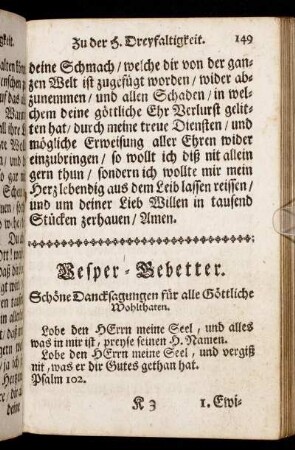 Zu der H. Dreyfaltigkeit. 149
deine Schmach / welche dir von der gan-
zen Welt ist zugefügt worden / wider ab-
zunemmen / und allen Schaden / in wel-
chem deine göttliche Ehr Verlurst gelit-
ten hat / durch meine treue Diensten / und
mögliche Erweisung aller Ehren wider
einzubringen / so wollt ich diß nit allein
gern thun / sondern ich wollte mir mein
Herz lebendig aus dem Leib lassen reissen /
und um deiner Lieb Willen in tausend
Stücken zerhauen / Amen.
Vesper-Gebetter.
Schöne Dancksagungen für alle Göttliche
Wohlthaten.
Lobe den HErrn meine Seel, und alles
was in mir ist, preyse seinen H. Namen.
Lobe den HErrn meine Seel, und vergiß
nit, was er dir Gutes gethan hat.
Psalm 102.
K 3 1. Ewi-